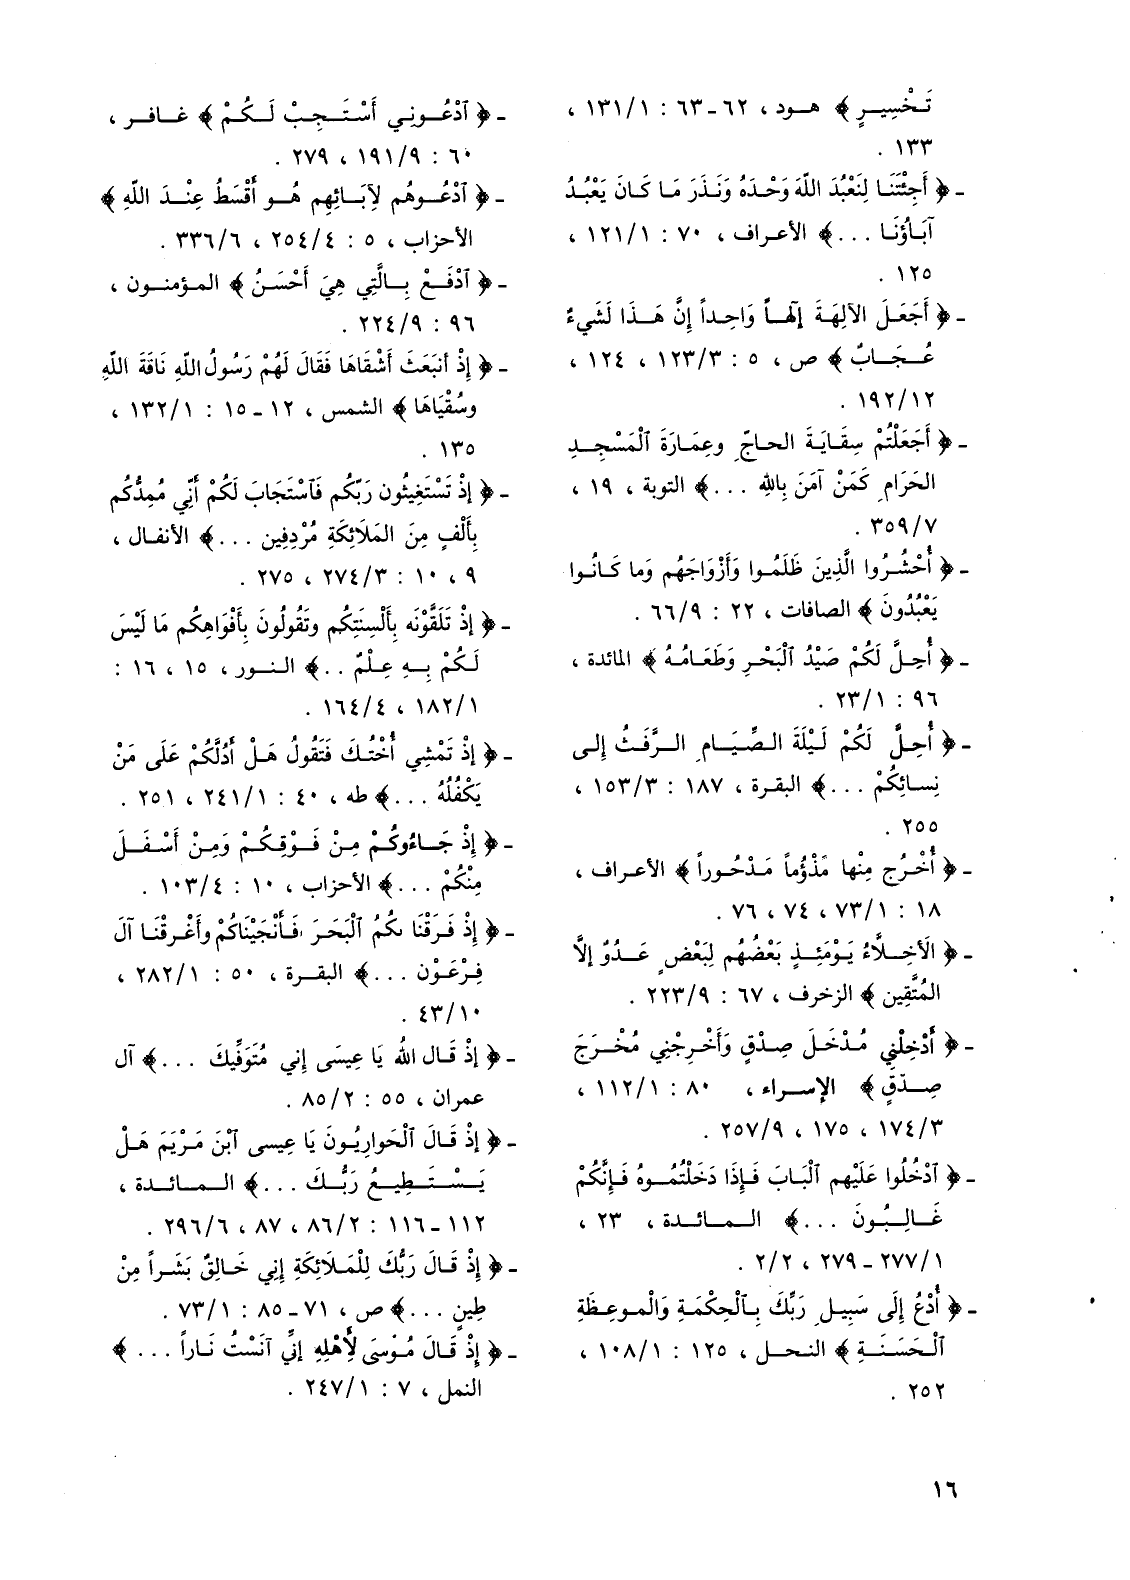 تَخْسِيرٍ ﴾ هود ، ٦٢ـ٦٣ : ١٣١/١ ،
١٣٣ .
ـ ﴿ أَجِئْتَنَا لِنَعْبُدَ اللّهَ وَحْدَهُ وَنَذَرَ مَا كَانَ يَعْبُدُ
آبَاؤُنَا ... ﴾ الأعراف ، ٧٠ : ١٢١/١ ،
١٢٥ .
ـ ﴿ أَجَعَلَ الآلِهَةَ إِلَهاً وَاحِداً إِنَّ هَذَا لَشَيءٌ
عُجَابٌ ﴾ ص ، ٥ : ١٢٣/٣ ، ١٢٤ ،
١٩٢/١٢ .
ـ ﴿ أَجَعَلْتُمْ سِقَايَةَ الحاجِّ وعِمَارَةَ ٱلْمَسْجِدِ
الحَرَامِ كَمَنْ آمَنَ بِاللهِ ... ﴾ التوبة ، ١٩ ،
٣٥٩/٧ .
ـ ﴿ أُحْشُرُوا الَّذِينَ ظَلَمُوا وَأَزْوَاجَهُم وَما كَانُوا
يَعْبُدُونَ ﴾ الصافات ، ٢٢ : ٦٦/٩ .
ـ ﴿ أُحِلَّ لَكُمْ صَيْدُ ٱلْبَحْرِ وَطَعَامُهُ ﴾ المائدة ،
٩٦ : ٢٣/١ .
ـ ﴿ أُحِلَّ لَكُمْ لَيْلَةَ الصِّيَامِ الرَّفَثُ إِلى
نِسائِكُمْ ... ﴾ البقرة ، ١٨٧ : ١٥٣/٣ ،
٢٥٥ .
ـ ﴿ أُخْرُج مِنْها مَذْؤُماً مَدْحُوراً ﴾ الأعراف ،
١٨ : ٧٣/١ ، ٧٤ ، ٧٦ .
ـ ﴿ الَأخِلَّاءُ يَوْمَئِذٍ بَعْضُهُم لِبَعْضٍ عَدُوٌ إلاَّ
المُتَّقِين ﴾ الزخرف ، ٦٧ : ٢٢٣/٩ .
ـ ﴿ أَدْخِلْنِي مُدْخَلَ صِدْقٍ وَأَخْرِجْنِي مُخْرَجَ
صِدْقٍ ﴾ الإسراء ، ٨٠ : ١١٢/١ ،
١٧٤/٣ ، ١٧٥ ، ٢٥٧/٩ .
ـ ﴿ ٱدْخُلُوا عَلَيْهِم ٱلْبَابَ فَإِذَا دَخَلْتُمُوهُ فَإِنَّكُمْ
غَالِبُونَ ... ﴾ المائدة ، ٢٣ ،
٢٧٧/١ ـ ٢٧٩ ، ٢/٢ .
ـ ﴿ أُدْعُ إِلَى سَبِيلِ رَبِّكَ بِٱلْحِكْمَةِ وَالْموعِظَةِ
ٱلْحَسَنَةِ ﴾ النحل ، ١٢٥ : ١٠٨/١ ،
٢٥٢ .
ـ ﴿ ٱدْعُونِي أَسْتَجِبْ لَكُمْ ﴾ غافر ،
٦٠ : ١٩١/٩ ، ٢٧٩ .
ـ ﴿ ٱدْعُوهُم لِآبَائِهِم هُو أَقْسَطُ عِنْدَ اللّهِ ﴾
الأحزاب ، ٥ : ٢٥٤/٤ ، ٣٣٦/٦ .
ـ ﴿ ٱدْفَعْ بِالَّتِي هِيَ أَحْسَنُ ﴾ المؤمنون ،
٩٦ : ٢٢٤/٩ .
ـ ﴿ إِذْ أنبَعَثَ أَشْقَاهَا فَقَالَ لَهُمْ رَسُولُ اللّهِ نَاقَةَ اللّهِ
وسُقْيَاهَا ﴾ الشمس ، ١٢ ـ ١٥ : ١٣٢/١ ،
١٣٥ .
ـ ﴿ إِذْ تَسْتَغِيثُون رَبّكُم فَٱسْتَجَابَ لَكُمْ أَنِّي مُمِدُّكُم
بِأَلْفٍ مِنَ المَلَائِكَةِ مُرْدِفِين ... ﴾ الأنفال ،
٩ ، ١٠ : ٢٧٤/٣ ، ٢٧٥ .
ـ ﴿ إِذْ تَلَقَّوْنَه بِأَلْسِنَتِكُم وتَقُولُونَ بِأَفْوَاهِكُم مَا لَيْسَ
لَكُمْ بِهِ عِلْمٌ ... ﴾ النور ، ١٥ ، ١٦ :
١٨٢/١ ، ١٦٤/٤ .
ـ ﴿ إِذْ تَمْشِي أُخْتُكَ فَتَقُولُ هَلْ أَدُلُّكُمْ عَلَى مَنْ
يَكْفُلُهُ ... ﴾ طه ، ٤٠ : ٢٤١/١ ، ٢٥١ .
ـ ﴿ إِذْ جَاءُوكُمْ مِنْ فَوْقِكُمْ وَمِنْ أَسْفَلَ
مِنْكُمْ ... ﴾ الأحزاب ، ١٠ : ١٠٣/٤ .
ـ ﴿ إِذْ فَرَقْنَا بكُمُ ٱلْبَحَرَ فَأَنْجَيْنَاكُمْ وأَغْرقْنَا آلَ
فِرْعَوْن ... ﴾ البقرة ، ٥٠ : ٢٨٢/١ ،
٤٣/١٠ .
ـ ﴿ إِذْ قَال اللهُ يَا عِيسَى إِني مُتَوَفِّيكَ ... ﴾ آل
عمران ، ٥٥ : ٨٥/٢ .
ـ ﴿ إِذْ قَالَ ٱلْحَوارِيُونَ يَا عِيسى ٱبْنَ مَرْيَمَ هَلْ
يَسْتَطِيعُ رَبُّكَ ... ﴾ المائدة ،
١١٢ـ١١٦ : ٨٦/٢ ، ٨٧ ، ٢٩٦/٦ .
ـ ﴿ إِذْ قَالَ رَبُّكَ لِلْمَلَائِكَةِ إِنِي خَالِقٌ بَشَراً مِنْ
طِينٍ ... ﴾ ص ، ٧١ـ ٨٥ : ٧٣/١ .
ـ ﴿ إِذْ قَالَ مُوْسَى لأَهْلِهِ إِنِّي آنَسْتُ نَاراً ... ﴾
النمل ، ٧ : ٢٤٧/١ .
١٦